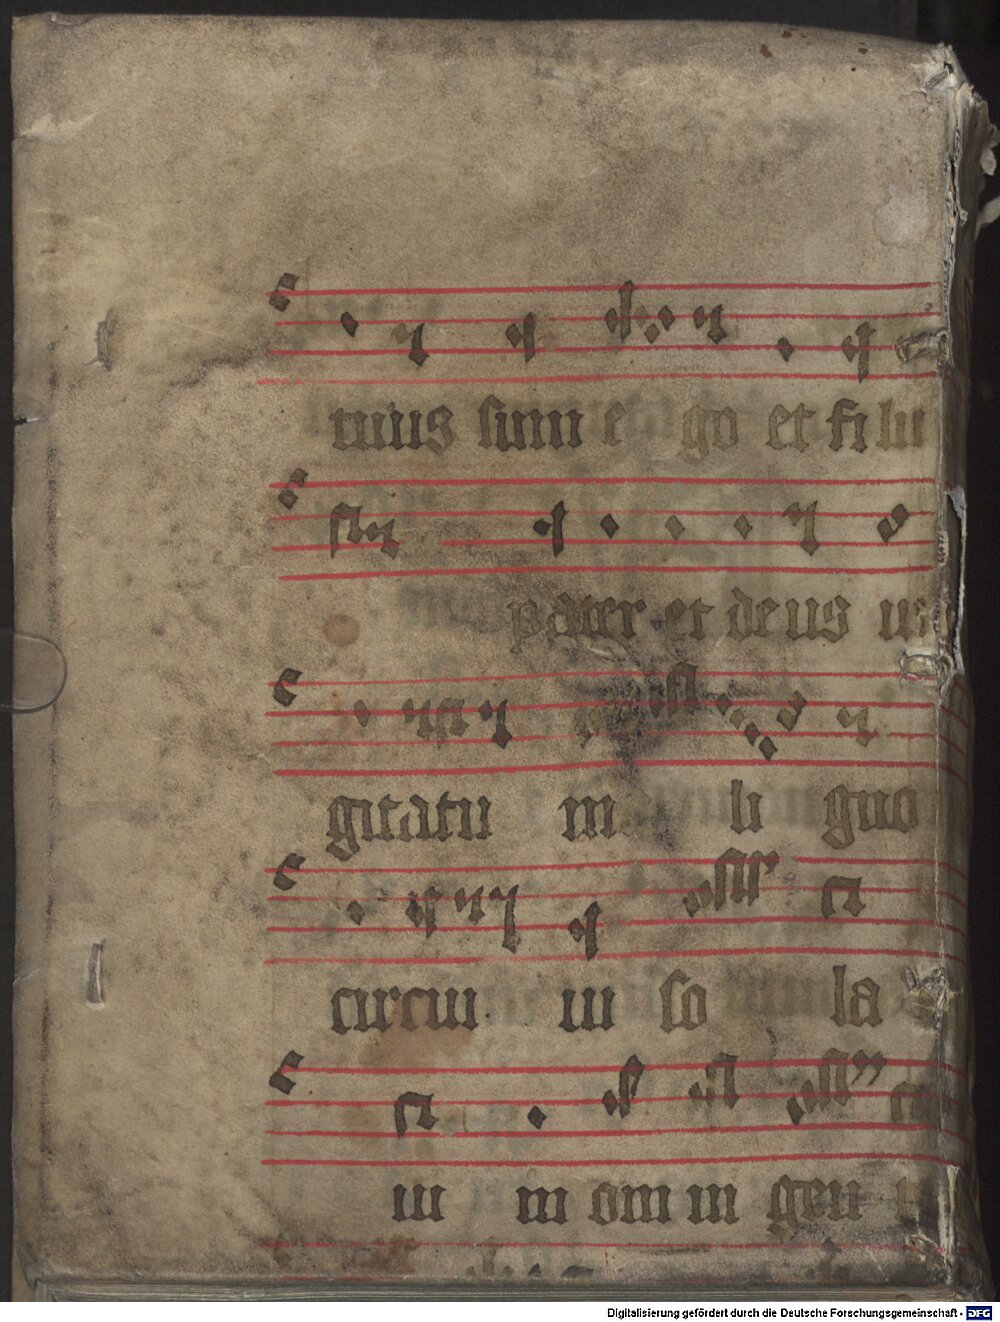 nuus sum e go et filu
pater et deus un
gitatu m li guo
circui iu so la
iu m om m gen
Digitalisierung gefördert durch die Deutsche Forschungsgemeinschaft - DFG